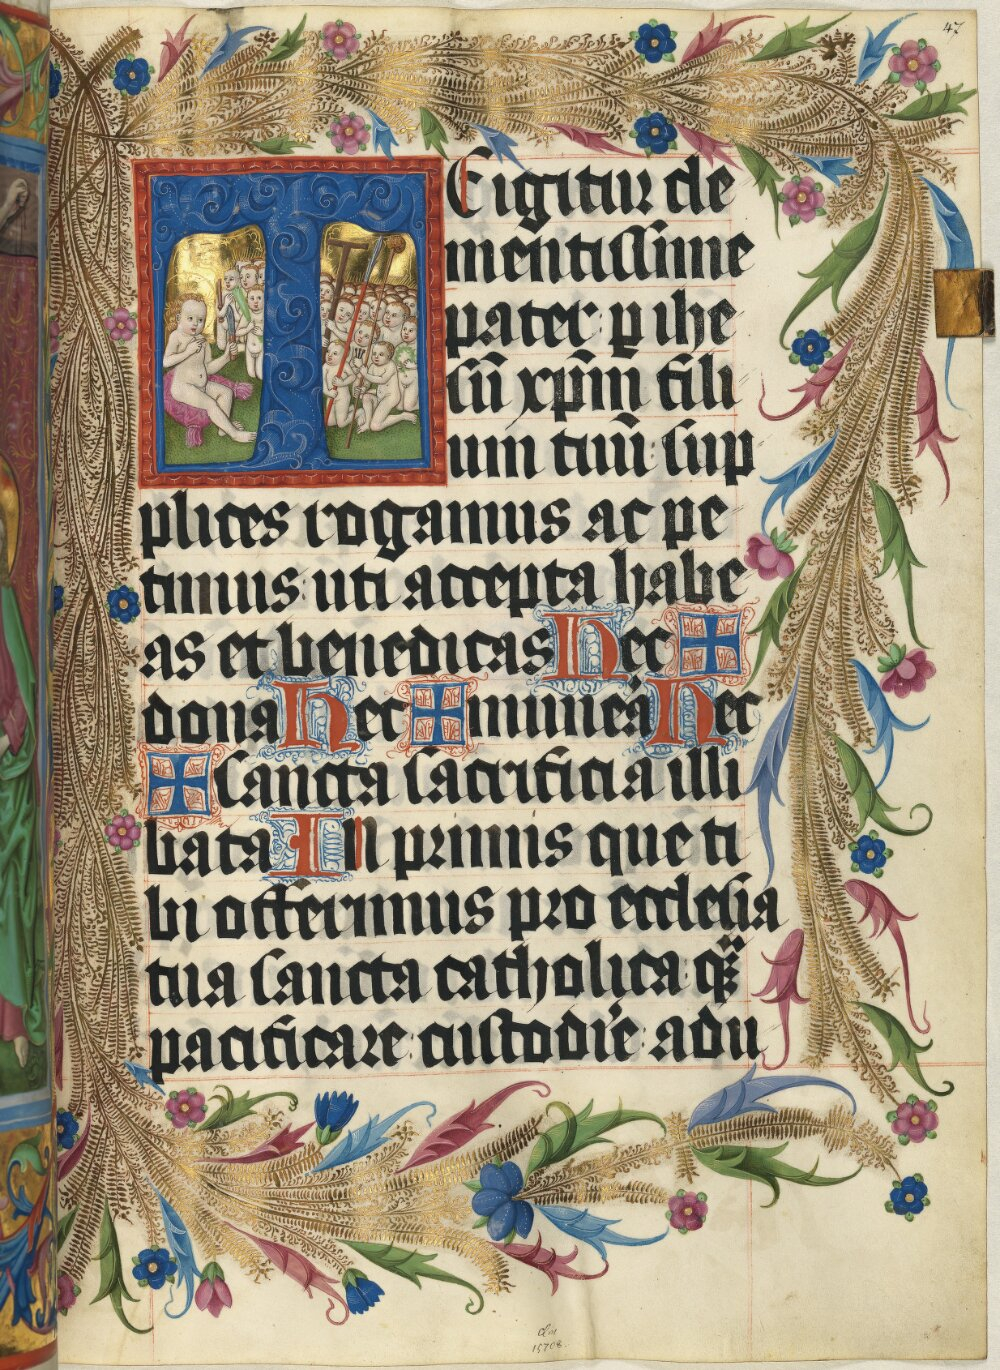 47
TEigitur cle
mentissime
pater p ihe
sū xp̄m fili
um tuū sup
plices rogamus ac pe
timus: uti accepta habe
as et benedicas Hec ✠
dona Hec ✠ munera Hec
✠ Sancta sacrificia illi
bata In primis que ti
bi offerimus pro ecclesia
tua sancta catholica: q̄ꝫ
pacificare: custodire: adu
Clm
15708.